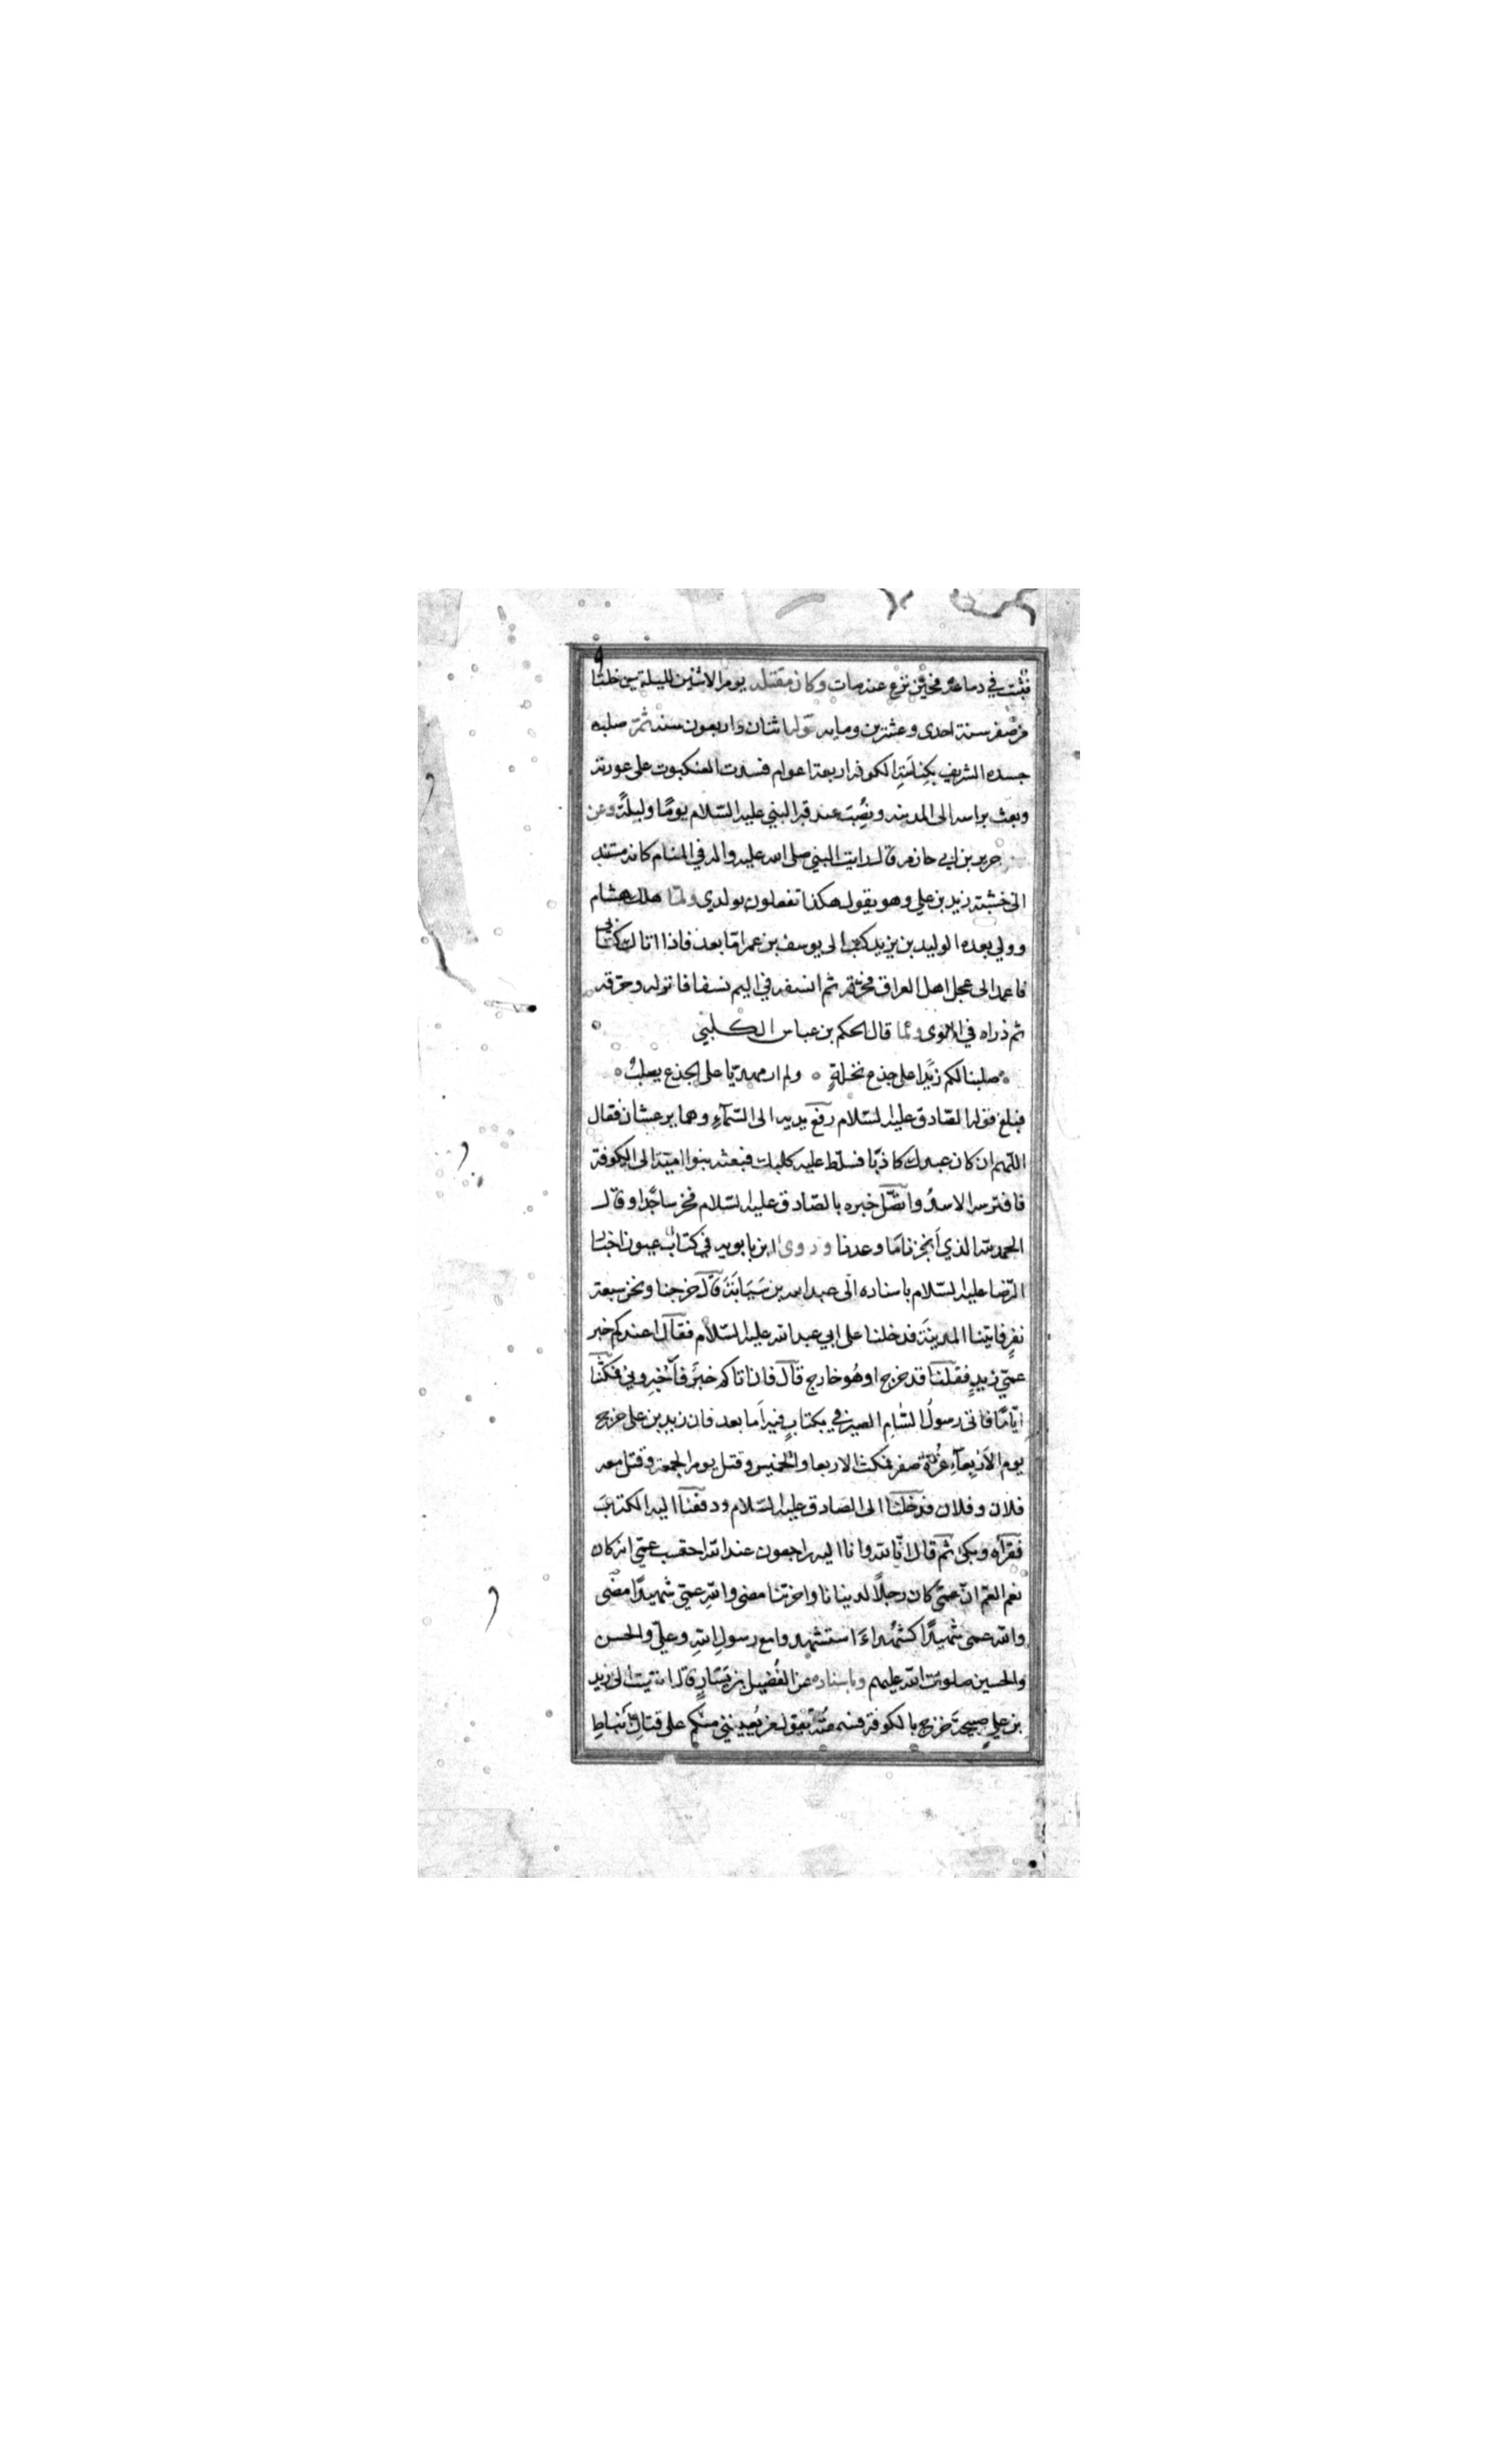 فثبت في دماغه فحين نزع عنه مات وكان مقتله يوم الاثنين لليلتين خلتا
من صفر سنة احدى وعشرين ومايه وله اثنان واربعون سنه ثم صلبه
جسده الشريف بكناسة الكوفه اربعة اعوام فسدت العنكبوت على عورته
وبعث براسه الى المدينه ونصبت عند قبر النبي عليه السلام يومًا وليلةً وعن
جرير بن ابي حازم قال رايت النبي صلى الله عليه واله في المنام كانه مستند
الى خشبة زيد بن علي وهو يقول هكذا تفعلون بولدي ولما هلك هشام
وولي بعده الوليد بن يزيد كتب الى يوسف بن عمر اما بعد فاذا اتاك كتابي
فاعمد الى عجل اهل العراق فحرقه ثم انسفه في اليم نسفا فانزله وحرقه
ثم ذراه في الهوى ومما قال الحكم بن عباس الكلبي
صلبنا لكم زيدا على جذع نخلةٍ ولم ار مهديا على الجذع يصلبُ
فبلغ قوله الصادق عليه السلام رفع يديه الى السمآء وهما يرعشان فقال
اللهم ان كان عبدك كاذبًا فسلط عليه كلبك فبعثه بنوا امية الى الكوفة
فافترسه الاسدُ واتصل خبره بالصادق عليه السلام فخر ساجدًا وقال
الحمد لله الذي أنجزنا مَا وعدنا وروى ابن بابويه في كتاب عيون اخبار
الرضا عليه السلام باسناده الى عبد الله بن سَيَابَة قال خرجنا ونحن سبعة
نفرٍ فاتينا المدينة فدخلنا على ابي عبد الله عليه السلام فقال اعندكم خبر
عمّي زيدٍ فقلنا قد خرج او هُو خارج قال فان اتاكم خبرٌ فأخبروني فمكثنا
ايّامًا فاتى رسولُ السّام الصيرفي بكتابٍ فيه اَما بعد فان زيد بن علي خرج
يوم الاربعآء غُرّة صفر فمكث الاربعا والخميس وقتل يوم الجمعة وقتل معه
فلان وفلان فدخلنا الى الصادق عليه السلام ودفعنا اليه الكتابَ
فقرأه وبكى ثم قال انّا لله وانا اليه راجعون عند الله احتسب عمّي انه كان
نعم العمّ انّ عمّي كان رجلاً لدينانا واخرتنا مضى واللهِ عمّي شهيدًا مضى
والله عمى شهيدًا كشُهداءَ استشهدوا مع رسولِ اللهِ وعليّ والحسن
والحسين صلوت الله عليهم وباسناده عن الفُضيل بن يَسَارٍ قال انتهيت الى زيد
بن عليٍ صبيحة خرج بالكوفة فسمعتُه يقول من يُعينني منكم على قتالِ أنباطِ